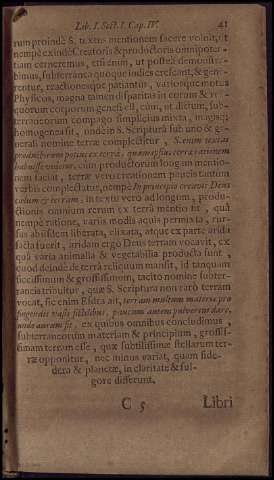 Lib. I. Sect. I. Cap. IV. 41
rum proinde S. textus mentionem facere voluit, ut
nempe exinde Creatoris & productoris omnipoten-
tiam cerneremus, etsi enim, ut postea demonstra-
bimus, subterranea quoque indies crescant, & gene-
rentur, reactionesque patiantur, variosque motus
Physicos, magna tamen disparitas in eorum & re-
liquorum corporum genesi est, cum, ut dictum, sub-
terraneorum compago simplicius mixta, magisque
homogenea sit, unde in S. Scriptura sub uno & ge-
nerali nomine terræ complectitur, S. enim textus
productorum potius ex terra, quam ipsius terræ rationem
habuisse videtur, cum productorum longam mentio-
nem faciat, terræ vero creationem paucis tantum
verbis complectatur, nempe In principio creavit Deus
cœlum & terram, in textu vero ad longum, produ-
ctionis omnium rerum ex terra mentio fit, qua
nempe ratione, variis modis aquis permixta, rur-
sus ab iisdem liberata, elixata, atque ex parte arida
facta fuerit, aridam ergo Deus terram vocavit, ex
qua varia animalia & vegetabilia producta sunt,
quod deinde de terra reliquum mansit, id tanquam
siccissimum & grossissimum, tacito nomine subter-
raneis tribuitur, quæ S. Scriptura non raro terram
vocat, sic enim Esdra ait, terram multam materiæ pro
fingendis vasis fictilibus, paucum autem pulverem dare,
unde aurum fit, ex quibus omnibus concludimus,
subterraneorum materiam & principium, grossis-
simam terram esse, quæ subtilissimæ stellarum ter-
ræ opponitur, nec minus variat, quam side-
dera & planetæ, in claritate & ful-
gore differunt.
C 5 Libri